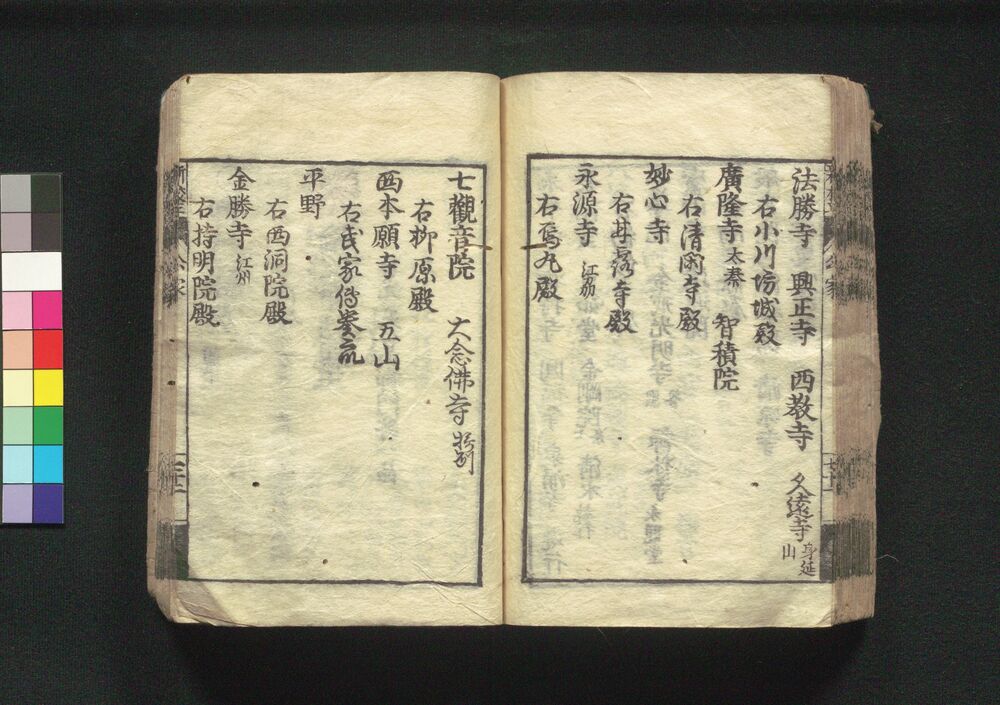 法勝寺 興正寺 西教寺 久遠寺 身延山
右小川坊城殿
廣隆寺 太秦 智積院
右清閑寺殿
妙心寺
右甘露寺殿
永源寺 江州
右烏丸殿
七觀音院 大念佛寺 摂州
右柳原殿
西本願寺 五山
右武家傳奏
平野
右西洞院殿
金勝寺 江州
右持明院殿